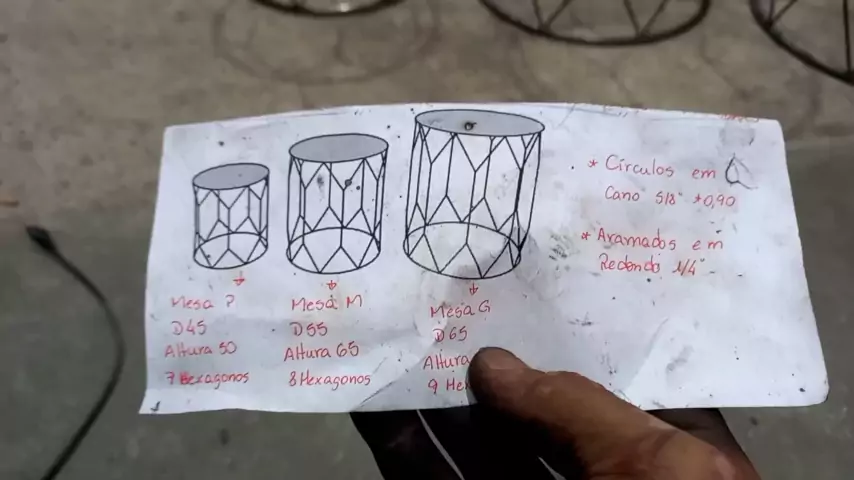 * Círculos em
Cano 5/8" *0,90
* Aramados em
Redondo 1/4"
Mesa P
D45
Altura 50
7 Hexagonos
Mesa M
D55
Altura 65
8 Hexagonos
Mesa G
D65
Altura
9 Hex